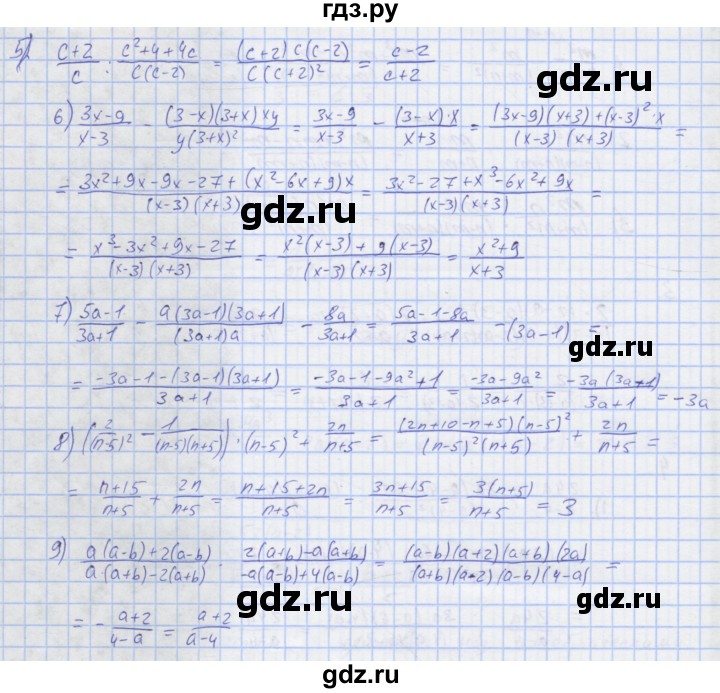 гдз.ру
5) (c+2)/c : (c²+4+4c)/(c(c-2)) = ((c+2)c(c-2))/(c(c+2)²) = (c-2)/(c+2)
6) (3x-9)/(x-3) - ((3-x)(3+x)xy)/(y(3+x)²) = (3x-9)/(x-3) - ((3-x)·x)/(x+3) = ((3x-9)(x+3)+(x-3)²·x)/((x-3)(x+3)) =
= (3x²+9x-9x-27+(x²-6x+9)x)/((x-3)(x+3)) = (3x²-27+x³-6x²+9x)/((x-3)(x+3)) =
= (x³-3x²+9x-27)/((x-3)(x+3)) = (x²(x-3)+9(x-3))/((x-3)(x+3)) = (x²+9)/(x+3)
7) (5a-1)/(3a+1) - (a(3a-1)(3a+1))/((3a+1)a) - 8a/(3a+1) = (5a-1-8a)/(3a+1) - (3a-1) =
= (-3a-1-(3a-1)(3a+1))/(3a+1) = (-3a-1-9a²+1)/(3a+1) = (-3a-9a²)/(3a+1) = (-3a(3a+1))/(3a+1) = -3a
8) (2/(n-5)² - 1/((n-5)(n+5))) · (n-5)² + 2n/(n+5) = ((2n+10-n+5)(n-5)²)/((n-5)²(n+5)) + 2n/(n+5) =
= (n+15)/(n+5) + 2n/(n+5) = (n+15+2n)/(n+5) = (3n+15)/(n+5) = (3(n+5))/(n+5) = 3
9) (a(a-b)+2(a-b))/(a(a+b)-2(a+b)) · (2(a+b)-a(a+b))/(-a(a-b)+4(a-b)) = ((a-b)(a+2)(a+b)(2a))/((a+b)(a-2)(a-b)(4-a)) =
= -(a+2)/(4-a) = (a+2)/(a-4)
gdz.ru
gdz.ru
gdz.ru
gdz.ru
gdz.ru